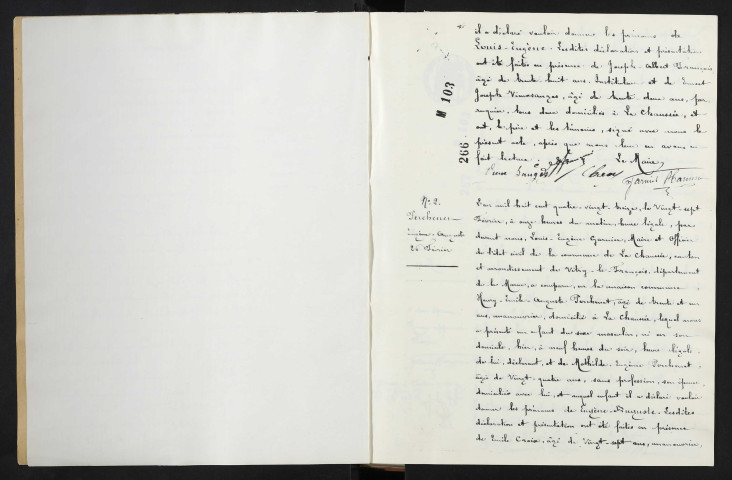 il a déclaré vouloir donner les prénoms de
Louis-Eugène. Lesdites déclaration et présentation
ont été faites en présence de Joseph Albert
âgé de trente huit ans, Instituteur et de Ernest
Joseph âgé de trente deux ans,
tous deux domiciliés à La Chaussée, et
ont, le père et les témoins, signé avec nous le
présent acte, après que nous leur en avons
fait lecture. Le Maire,
M 103
266
N° 2.
Eugène-Auguste
26 Février
L'an mil huit cent quatre-vingt-treize, le Vingt-sept
Février, à onze heures du matin, heure légale, par
devant nous, Louis-Eugène Garnier, Maire et Officier
de l'état civil de la commune de La Chaussée, canton
et arrondissement de Vitry-le-François, département
de la Marne, a comparu, en la maison commune
Henry-Emile-Auguste âgé de trente et un
ans, manouvrier, domicilié à La Chaussée, lequel nous
a présenté un enfant du sexe masculin, né en son
domicile, hier, à neuf heures du soir, heure légale,
de lui, déclarant, et de Mathilde Eugénie
âgée de Vingt-quatre ans, sans profession, son épouse,
domiciliée avec lui, et auquel enfant il a déclaré vouloir
donner les prénoms de Eugène-Auguste. Lesdites
déclaration et présentation ont été faites en présence
de Emile Croix, âgé de Vingt-sept ans, manouvrier,